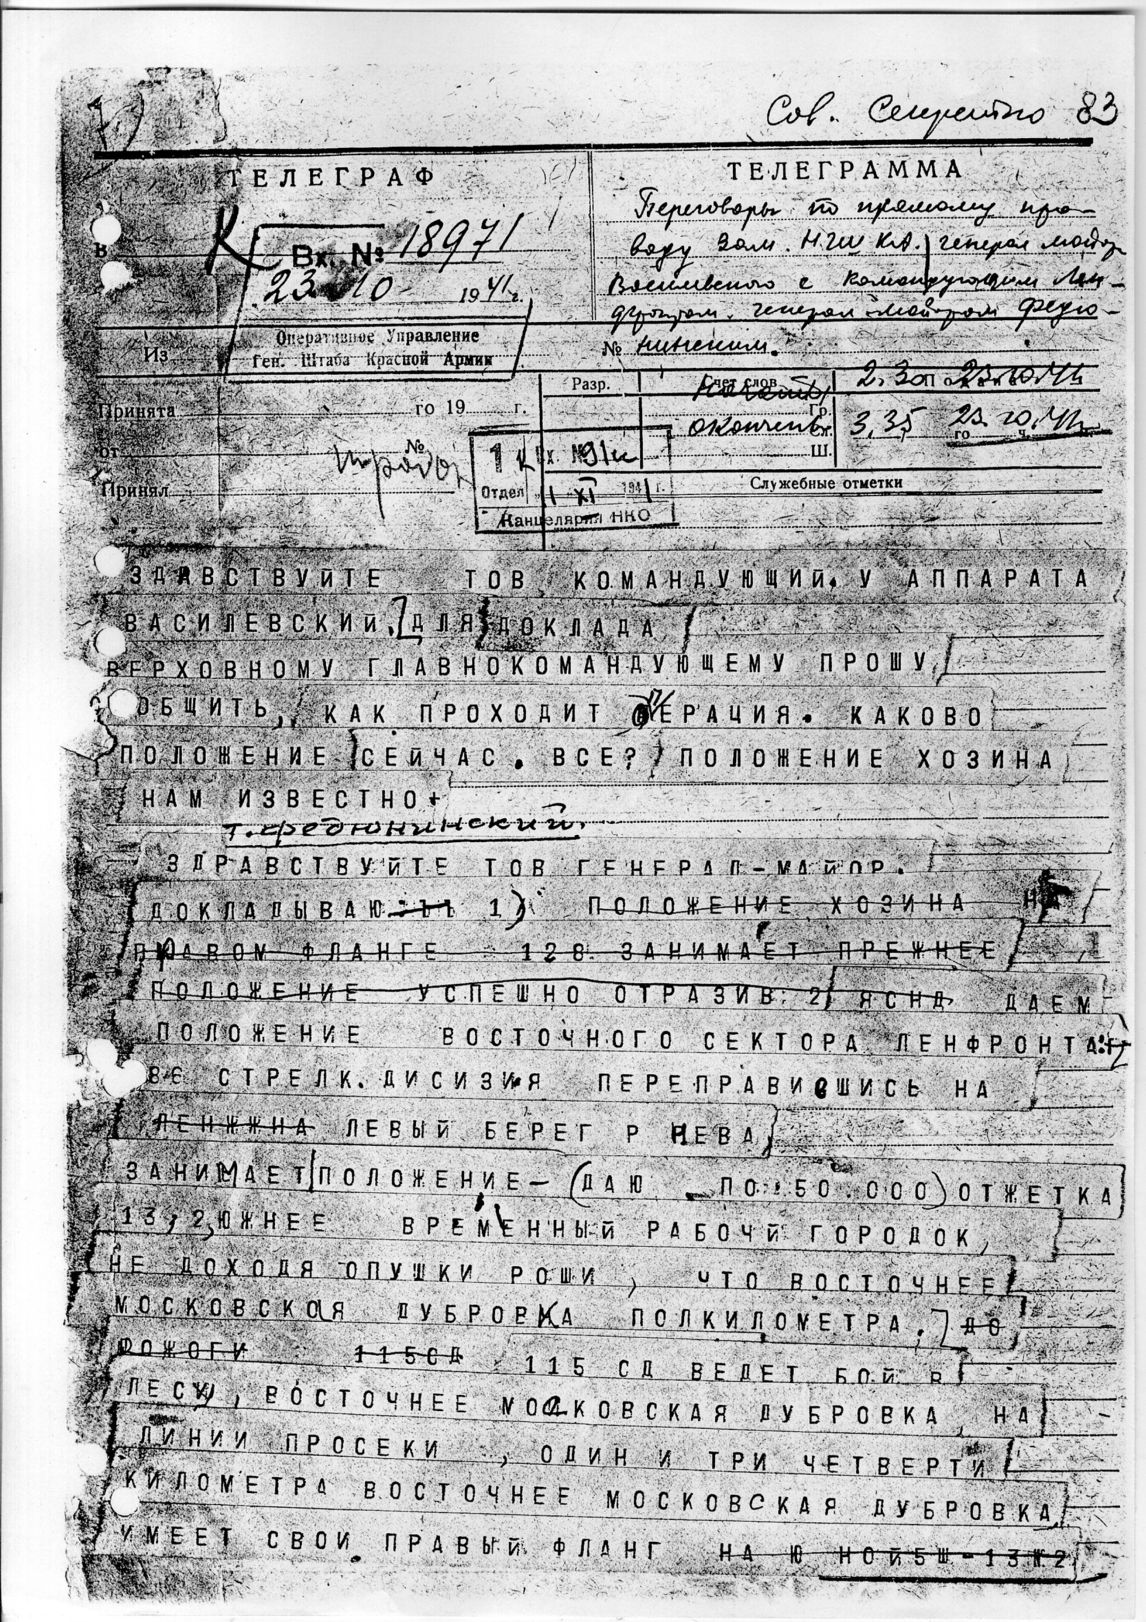 Сов. Секретно 83
ТЕЛЕГРАФ
ТЕЛЕГРАММА
Переговоры по прямому про-
воду Зам. НГШ КА генерал майор
Василевского с командующим Лен-
фронтом генерал-майором Федю-
нинским.
В
К
Вх. № 18971
23 10 1941 г.
Оперативное Управление
Ген. Штаба Красной Армии
Из
№
Разр.
Счет слов
Начато
2.30 23.10.41
Гр.
окончен
3.35 23.10.41
го ч.
Ш.
Принята го 19 г.
от №
Принял
1
Отдел
Вх. №
1 XI 1941 г.
Канцелярия НКО
Служебные отметки
ЗДАВСТВУЙТЕ ТОВ КОМАНДУЮЩИЙ. У АППАРАТА
ВАСИЛЕВСКИЙ. ДЛЯ ДОКЛАДА
ВЕРХОВНОМУ ГЛАВНОКОМАНДУЮЩЕМУ ПРОШУ
ОБЩИТЬ, КАК ПРОХОДИТ ОПЕРАЦИЯ. КАКОВО
ПОЛОЖЕНИЕ СЕЙЧАС. ВСЕ? ПОЛОЖЕНИЕ ХОЗИНА
НАМ ИЗВЕСТНО+
т. Федюнинский.
ЗДРАВСТВУЙТЕ ТОВ ГЕНЕРАЛ-МАЙОР.
ДОКЛАДЫВАЮ 1) ПОЛОЖЕНИЕ ХОЗИНА НА
ПРАВОМ ФЛАНГЕ 128 ЗАНИМАЕТ ПРЕЖНЕЕ
ПОЛОЖЕНИЕ УСПЕШНО ОТРАЗИВ 2 ЯСНД ДАЕМ
ПОЛОЖЕНИЕ ВОСТОЧНОГО СЕКТОРА ЛЕНФРОНТА:
86 СТРЕЛК. ДИСИЗИЯ ПЕРЕПРАВИВШИСЬ НА
ЛЕНЖЖНА ЛЕВЫЙ БЕРЕГ Р НЕВА,
ЗАНИМАЕТ ПОЛОЖЕНИЕ- (ДАЮ ПО 50.000) ОТЖЕТКА
13,2 ЮЖНЕЕ ВРЕМЕННЫЙ РАБОЧЙ ГОРОДОК,
НЕ ДОХОДЯ ОПУШКИ РОШИ, ЧТО ВОСТОЧНЕЕ
МОСКОВСКАЯ ДУБРОВКА ПОЛКИЛОМЕТРА. ДО
ФОЖОГИ 115СД 115 СД ВЕДЕТ БОЙ В
ЛЕСУ, ВОСТОЧНЕЕ МОСКОВСКАЯ ДУБРОВКА НА
ЛИНИИ ПРОСЕКИ, ОДИН И ТРИ ЧЕТВЕРТИ
КИЛОМЕТРА ВОСТОЧНЕЕ МОСКОВСКАЯ ДУБРОВКА
ИМЕЕТ СВОИ ПРАВЫЙ ФЛАНГ НА Ю НОЙ5Ш-13Ж2